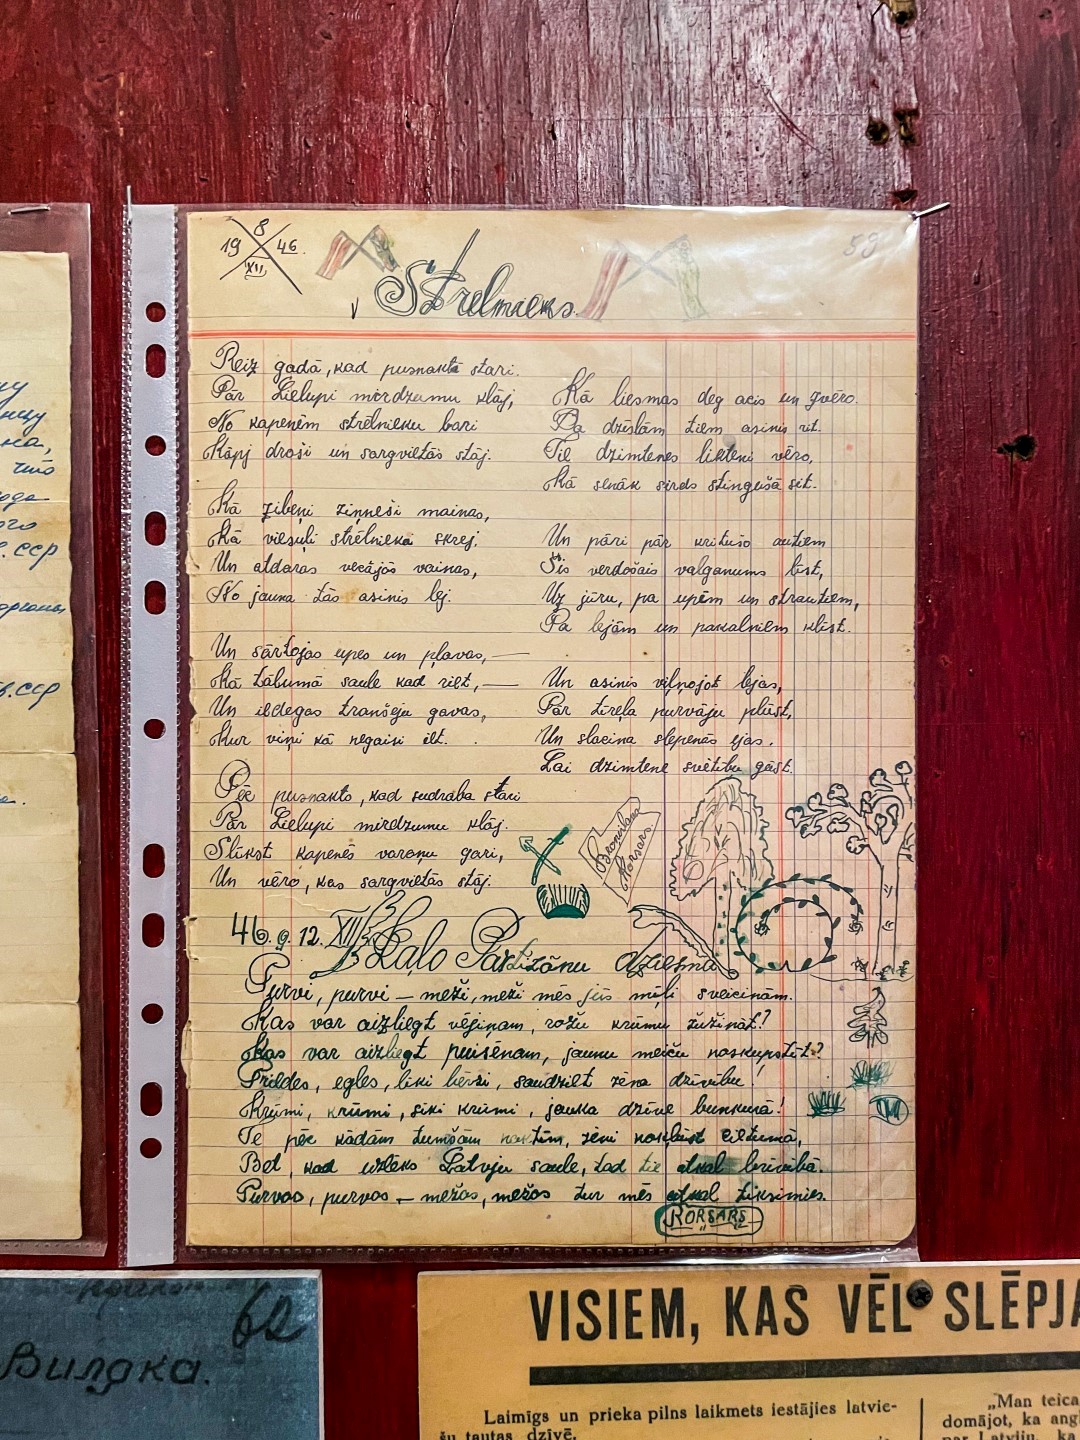 19 8/XII 46.
53
Strēlnieks.
Reiz gadā, kad pusnakts stari.
Pār Lielupi mirdzumu klāj,
No kapenēm strēlnieku bari
Kāpj droši un sargvietās stāj.
Kā zibeņi ziņneši mainas,
Kā viesuļi strēlnieki skrej.
Un atdaras vecājās vainas,
No jauna tās asinis lej.
Un sārtojas upes un pļavas, —
Kā tālumā saule kad riet, —
Un iededgas tranšeju gavas,
Kur viņi kā negaisi iet.
Pēc pusnakts, kad sudraba stari
Pār Lielupi mirdzumu klāj.
Slīkst kapenēs varoņu gari,
Un vēro, kas sargvietās stāj.
Kā liesmas deg acis un gvēro.
Pa dzīslām tiem asinis rit.
Tie dzimtenes likteni vēro,
Kā slnāk sirds stingušā sit.
Un pāri pār kritušo autiem
Šis verdošais valganums līst,
Uz jūru, pa upēm un strautiem,
Pa lejām un pakalniem klīst.
Un asinis viļņojot lejas,
Pār tīreļa purvāju plūst,
Un slacina slepenās ejas.
Lai dzimtene svētību gūst.
Bronislavs
Korsars.
46. g. 12. XII
Zaļo Partizānu dziesma
Purvi, purvi — meži, meži mēs jūs mīļi sveicinām.
Kas var aizliegt vējiņam, rožu krūmu žužināt?
Kas var aizliegt puisēnam, jaunu meiču noskūpstīt?
Priedes, egles, līki bērzi, saudzēiet zēna dzīvību!
Krūmi, krūmi, sīki krūmi, jauka dzīve bunkurā!
Te pēc kādām tumšām naktīm, zēni noklīst cietumā,
Bet, kad uzlēks Latvju saule, tad tie atkal brīvībā.
Purvos, purvos — mežos, mežos tur mēs atkal tiksimies.
KORSARS
ну
ницу
на,
что
рода
ого
С. ССР
органы
В. ССР
62
Вилдка.
VISIEM, KAS VĒL SLĒPJA
Laimīgs un prieka pilns laikmets iestājies latvie-
šu tautas dzīvē.
„Man teica
domājot, ka ang
par Latviju, ka